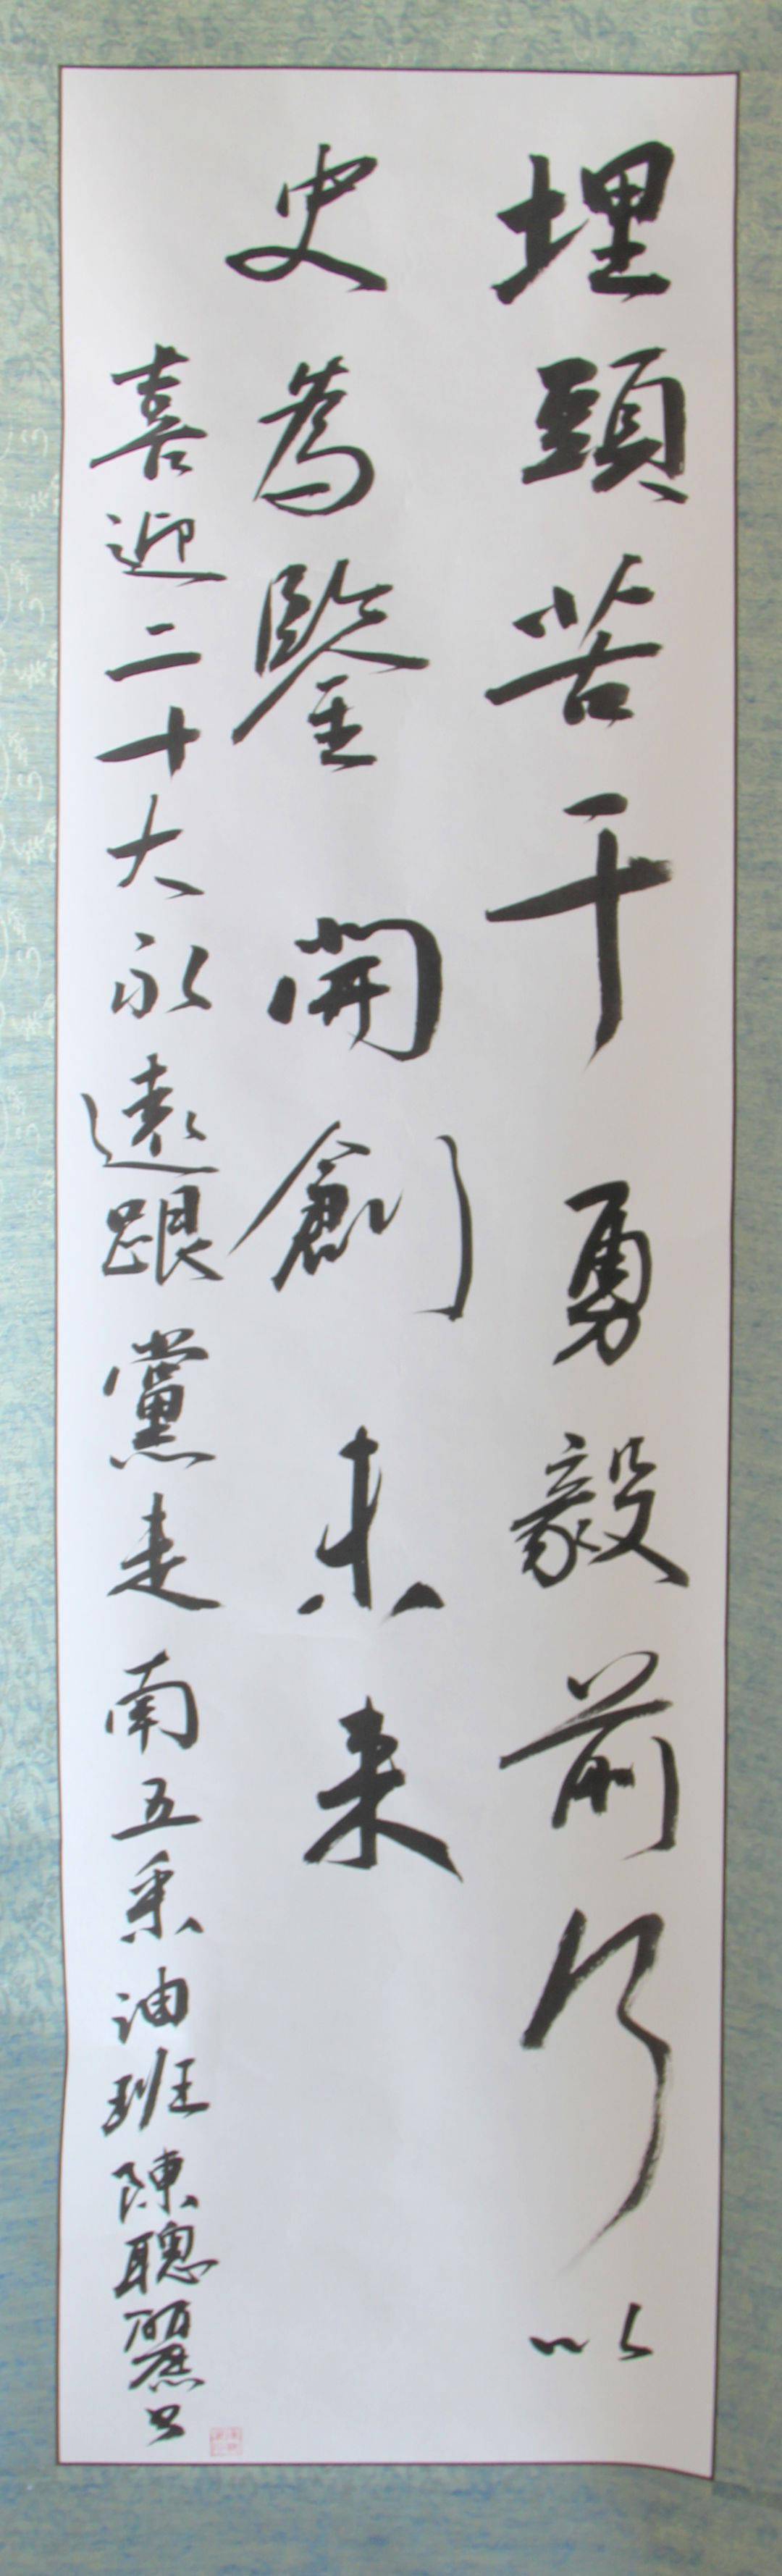 埋頭苦干勇毅前行以
史為鑒開創未来
喜迎二十大永遠跟黨走南五乘油班陳聰麗書